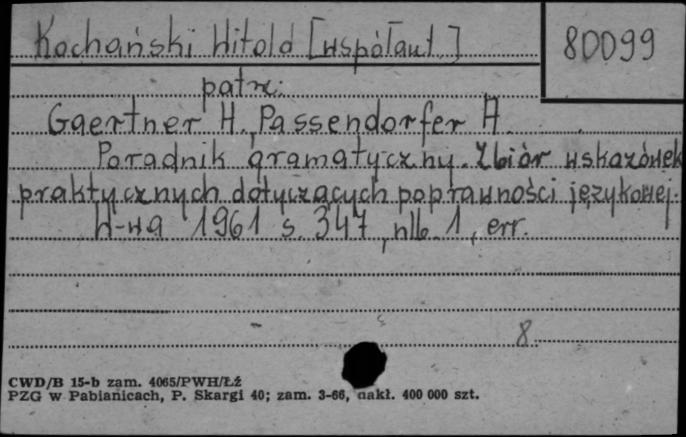 Kochański Witold [współaut.]
80099
patrz:
Gaertner H., Passendorfer A.
Poradnik gramatyczny. Zbiór wskazówek
praktycznych dotyczących poprawności językowej.
W-wa 1961 s. 347, nlb. 1, err.
8
CWD/B 15-b zam. 4065/PWH/Łź
PZG w Pabianicach, P. Skargi 40; zam. 3-66, nakł. 400 000 szt.